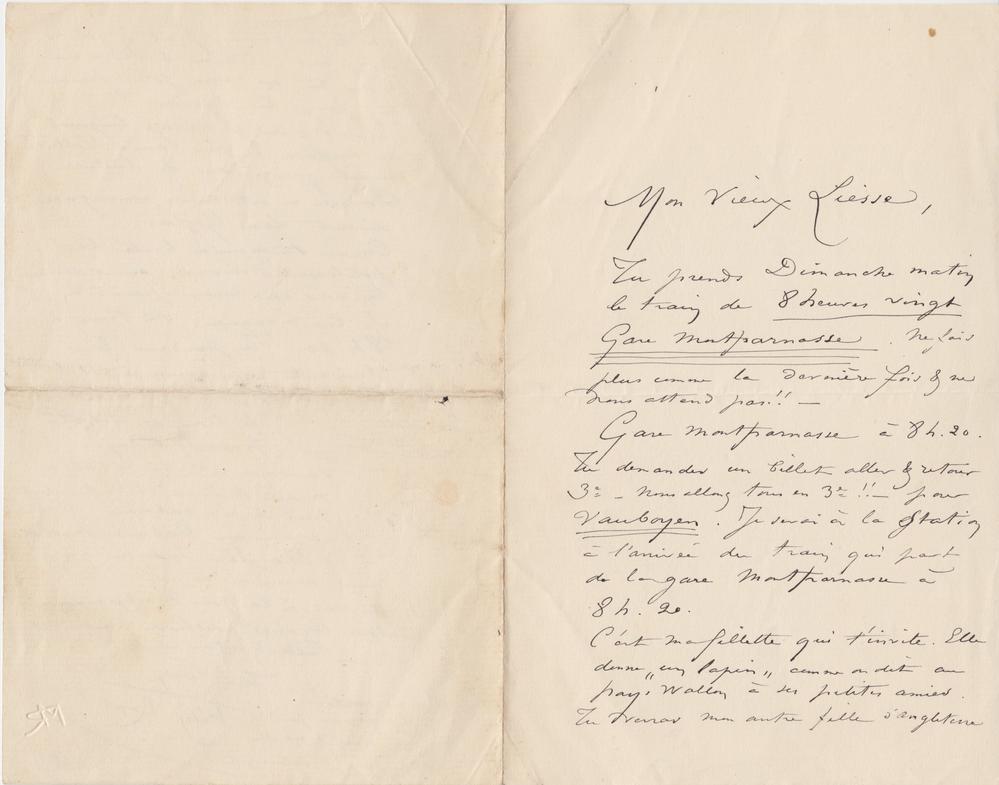 Mon Vieux Liesse,
Tu prends Dimanche matin
le train de 8 heures vingt
Gare Montparnasse. Ne fais
plus comme la dernière fois & ne
nous attend pas!! —
Gare Montparnasse à 8 h. 20.
Tu demandes un billet aller & retour
3e — nous allons tous en 3e !! — pour
Vauboyen. Je serai à la Station
à l'arrivée du train qui part
de la gare Montparnasse à
8 h. 20.
C'est ma fillette qui t'invite. Elle
donne „un lapin„ comme on dit au
pays Wallon à ses petites amies.
Tu verras mon autre fille d'angleterre